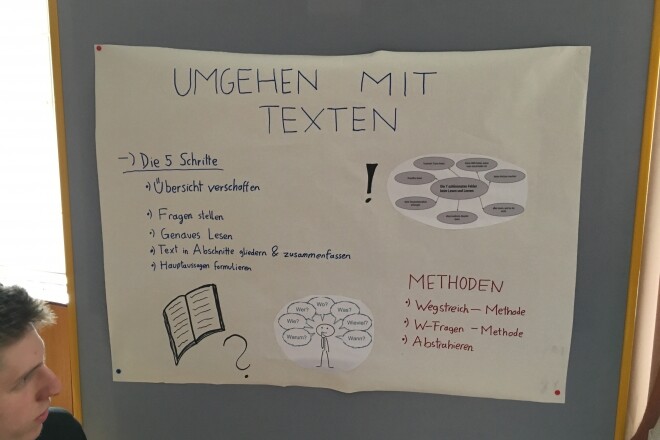 UMGEHEN MIT
TEXTEN
→) Die 5 Schritte
•) Übersicht verschaffen
•) Fragen stellen
•) Genaues Lesen
•) Text in Abschnitte gliedern & zusammenfassen
•) Hauptaussagen formulieren
!
?
Wer?
Wo?
Was?
Wie?
Wieviel?
Warum?
Wann?
METHODEN
•) Wegstreich - Methode
•) W-Fragen - Methode
•) Abstrahieren